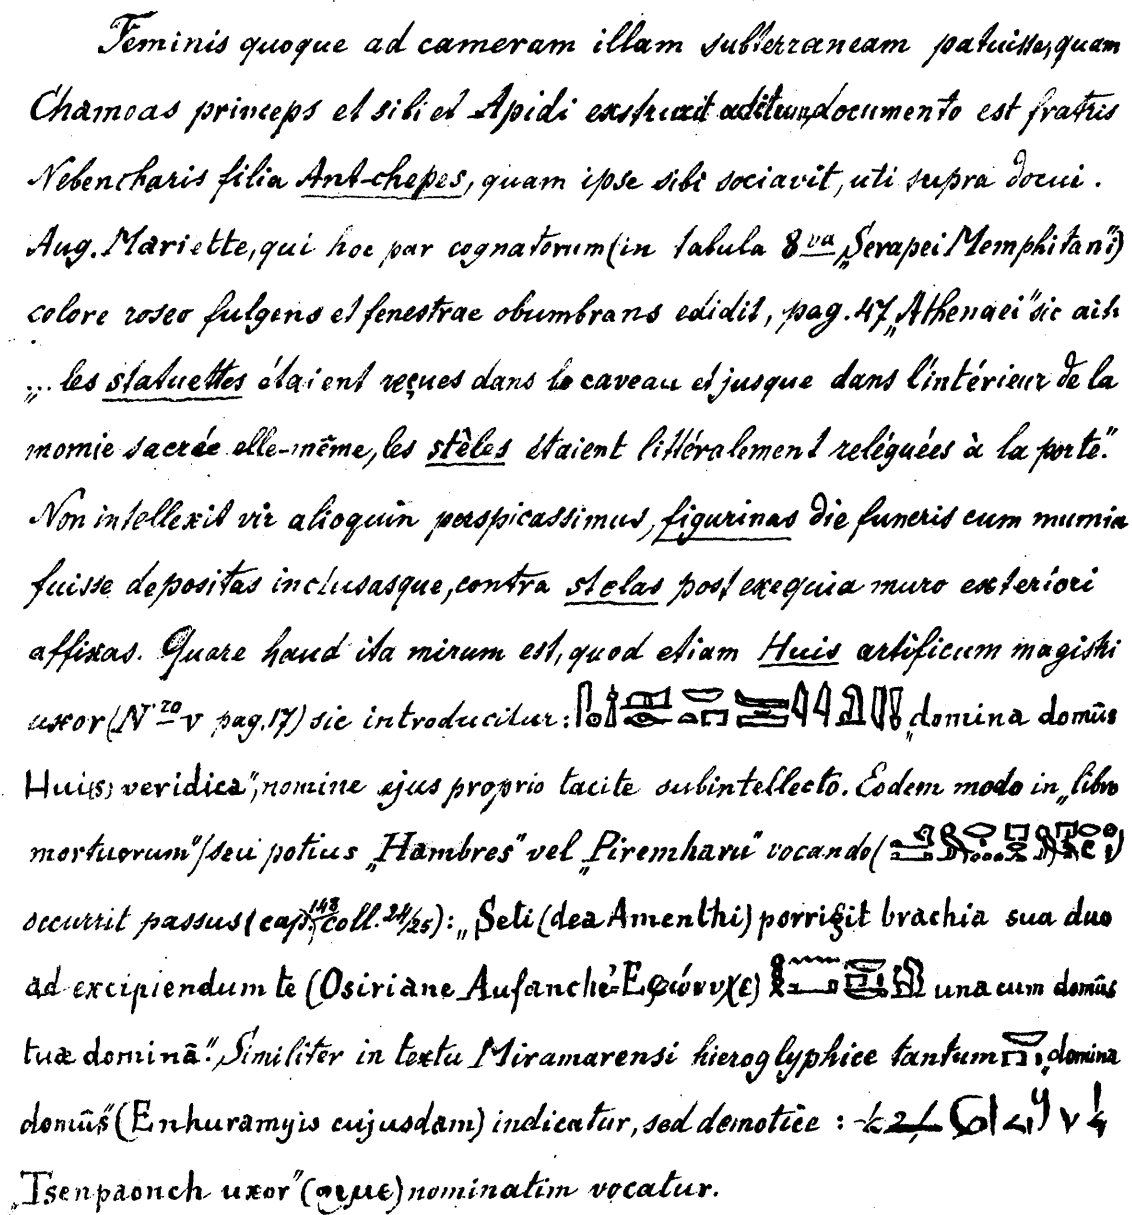 Feminis quoque ad cameram illam subterraneam patuisse, quam
Chamoas princeps et sibi et Apidi exstruxit aditum, documento est fratris
Nebencharis filia Ant-chepes, quam ipse sibi sociavit, uti supra docui.
Aug. Mariette, qui hoc par cognatorum (in tabula 8va „Serapei Memphitani")
colore roseo fulgens et fenestrae obumbrans edidit, pag. 47 „Athenaei" sic ait:
„... les statuettes étaient reçues dans le caveau et jusque dans l'intérieur de la
momie sacrée elle-même, les stèles étaient littéralement reléguées à la porte."
Non intellexit vir alioquin perspicassimus, figurinas die funeris cum mumia
fuisse depositas inclusasque, contra stelas post exequia muro exteriori
affixas. Quare haud ita mirum est, quod etiam Huis artificum magistri
uxor (N. 20 v pag. 17) sic introducitur: „domina domûs
Hui(s) veridica", nomine ejus proprio tacite subintellecto. Eodem modo in „libro
mortuorum" (seu potius „Hambres" vel „Piremharu" vocando (
occurrit passus (cap. 148 coll. 24/25): „Seti (dea Amenthi) porrigit brachia sua duo
ad excipiendum te (Osiriane Aufanche = Εφώνυχε) una cum domûs
tuæ dominâ". Similiter in textu Miramarensi hieroglyphice tantum „domina
domûs" (Enhuramyis cujusdam) indicatur, sed demotice :
„Tsenpaonch uxor" (ϩιμε) nominatim vocatur.